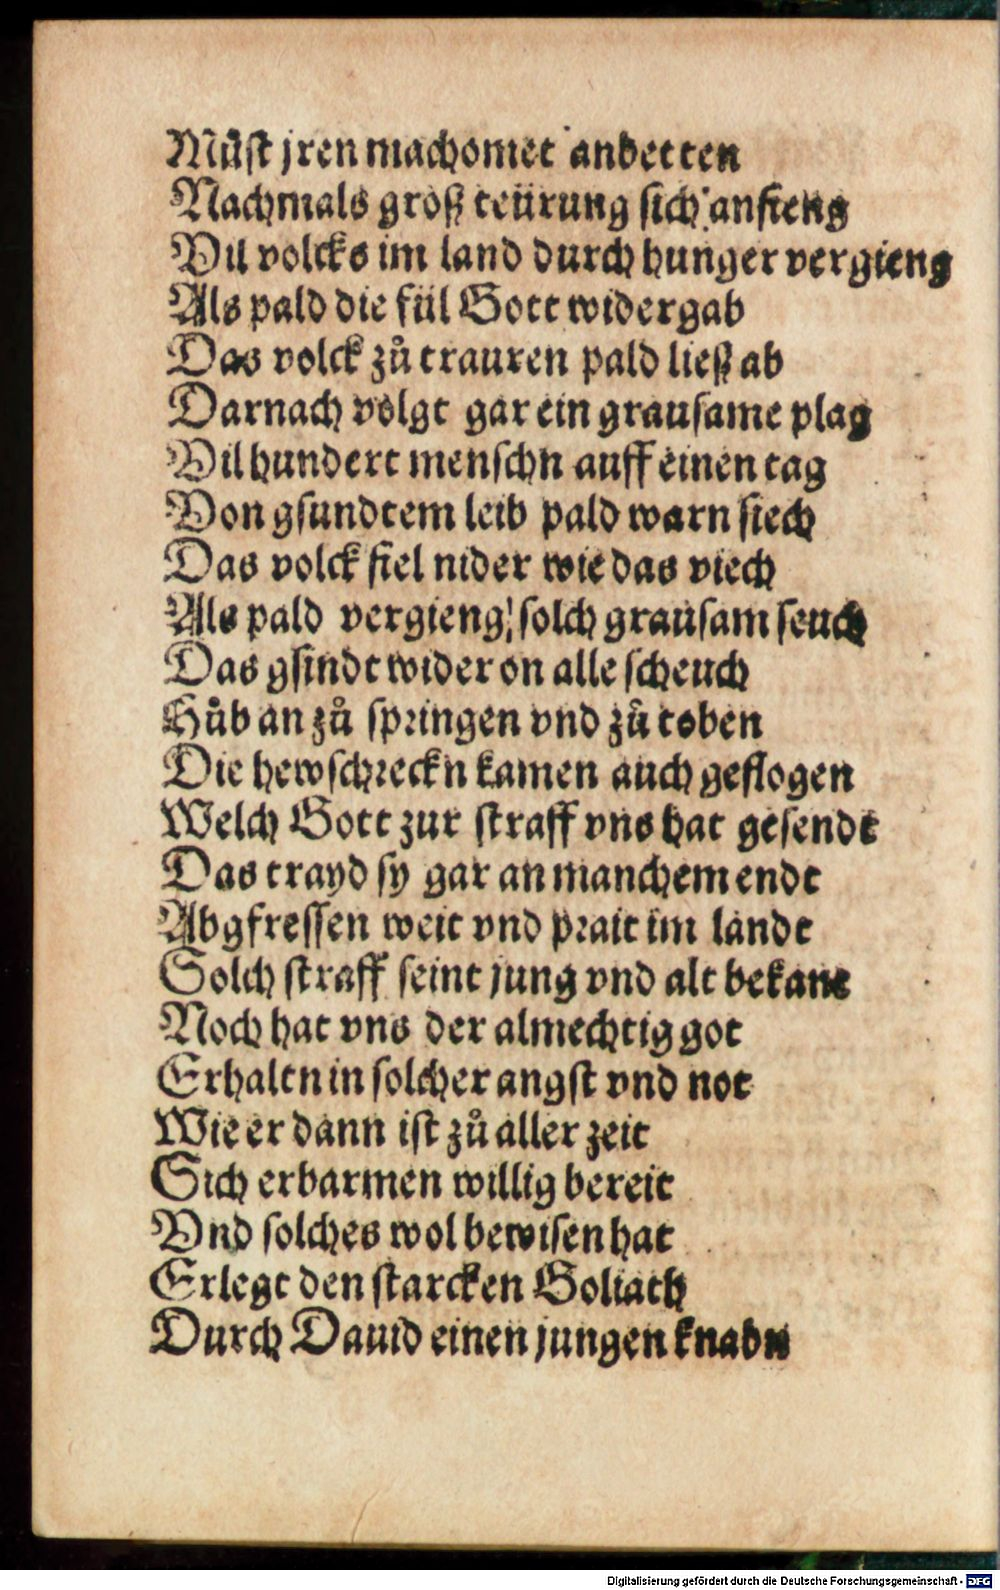 Muͤst jren machomet anbetten
Nachmals groß teürung sich anfieng
Vil volcks im land durch hunger vergieng
Als pald die fül Gott widergab
Das volck zů trauren pald ließ ab
Darnach volgt gar ein grausame plag
Vil hundert menschn auff einen tag
Von gsundtem leib pald warn siech
Das volck fiel nider wie das viech
Als pald vergieng solch grausam seuch
Das gsindt wider on alle scheuch
Hůb an zů springen vnd zů toben
Die hewschreckn kamen auch geflogen
Welch Gott zur straff vns hat gesendt
Das trayd sy gar an manchem endt
Abgfressen weit vnd prait im landt
Solch straff seint jung vnd alt bekant
Noch hat vns der almechtig got
Erhaltn in solcher angst vnd not
Wie er dann ist zů aller zeit
Sich erbarmen willig bereit
Vnd solches wol bewisen hat
Erlegt den starcken Goliath
Durch Dauid einen jungen knabn
Digitalisierung gefördert durch die Deutsche Forschungsgemeinschaft - DFG